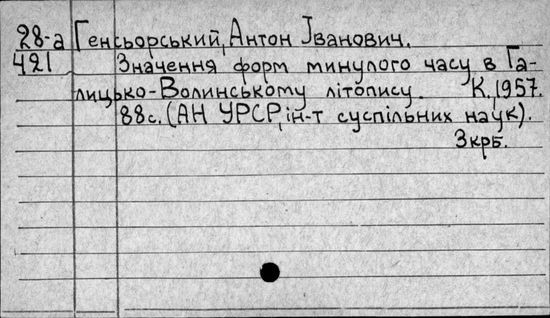 28-а Генсьорський, Антон Іванович.
421 Значення форм минулого часу в Га-
лицько-Волинському літопису. К., 1957.
88с. (АН УРСР, ін-т суспільних наук).
3крб.